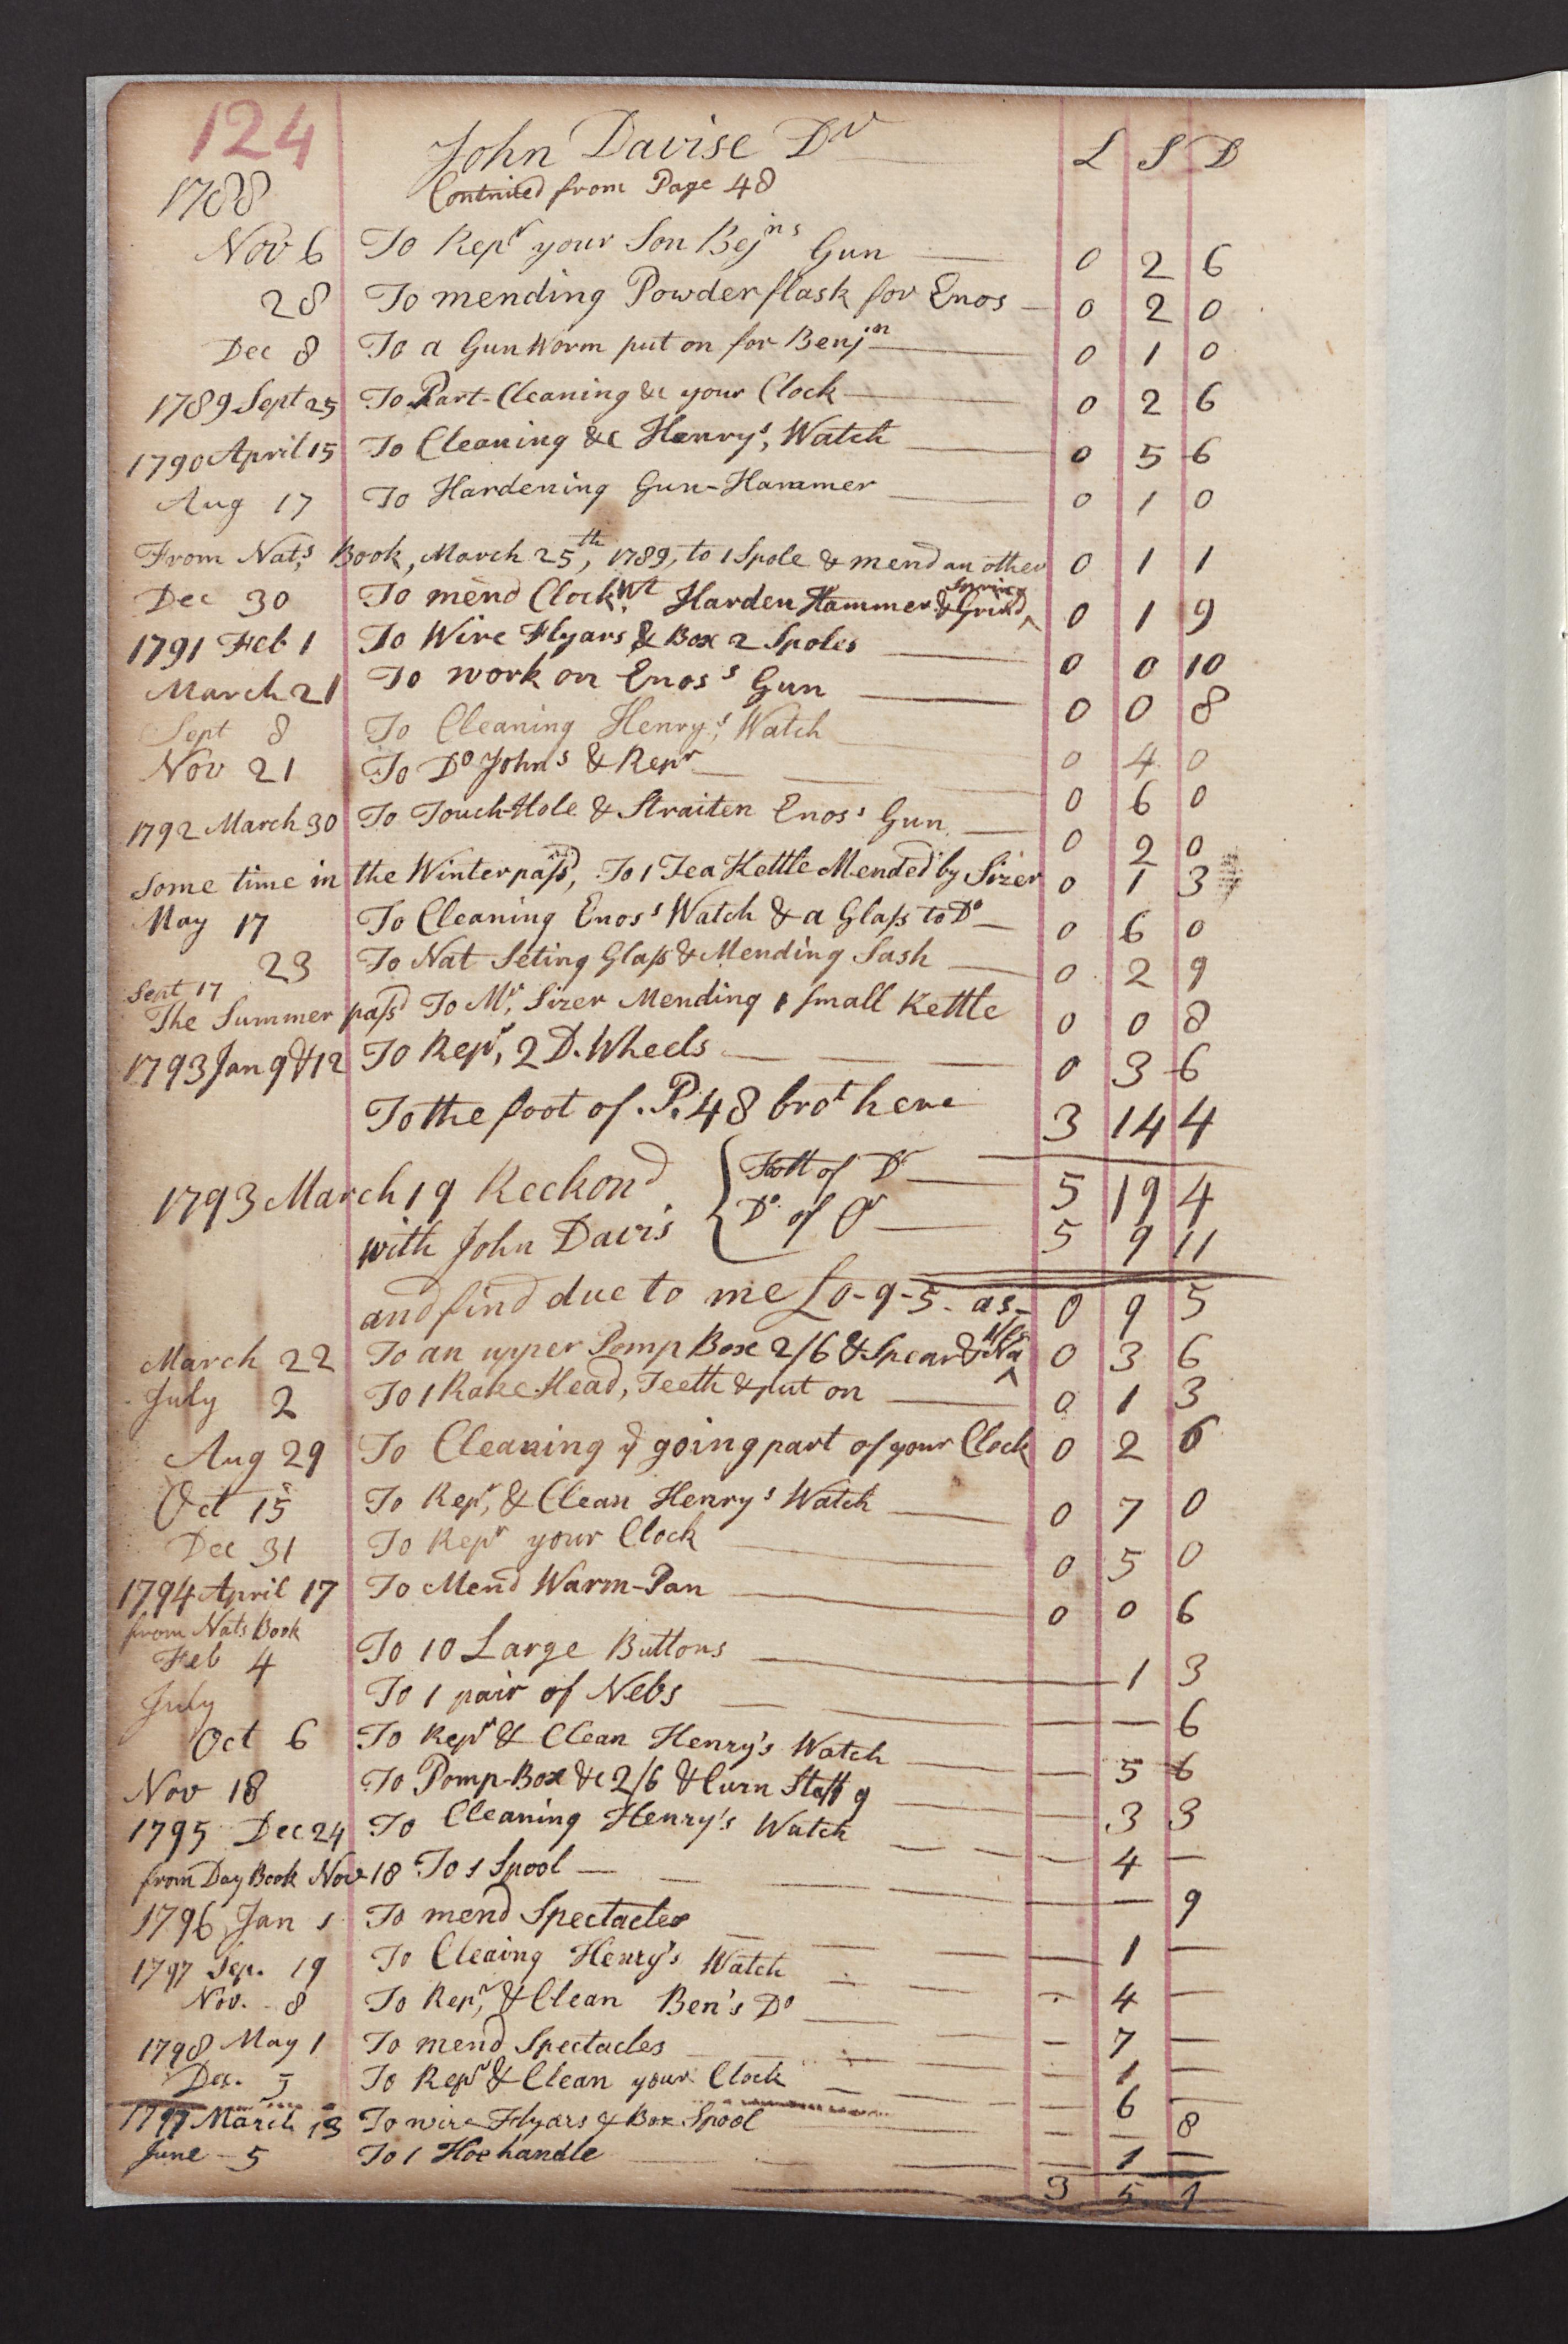 124
John Davise Dr L S D
1788 Contnued from Page 48
Nov 6 To Repr your Son Bejns Gun 0 2 6
28 To mending Powderflask for Enos 0 2 0
Dec 8 To a Gun Worm put on for Benjn 0 1 0
1789 Sept 25 To Part-Cleaning &c your Clock 0 2 6
1790 April 15 To Cleaning &c Henrys, Watch 0 5 6
Aug 17 To Hardening Gun-Hammer 0 1 0
From Nats Book, March 25th, 1789, to 1 Spole & mend an other 0 1 1
Dec 30 To mend Clock Harden Hammer & Grind Spring 0 1 9
1791 Feb 1 To Wire Flyars & Box 2 Spoles 0 0 10
March 21 To work on Enos's Gun 0 0 8
Sept 8 To Cleaning Henry's Watch 0 4 0
Nov 21 To Do Johns & Repr 0 6 0
1792 March 30 To Touch-Hole & Straiten Enos's Gun 0 2 0
Some time in the Winter passd, To 1 Tea Kettle Mended by Sizer 0 1 3
May 17 To Cleaning Enos's Watch & a Glass to Do 0 6 0
23 To Nat Seting Glass & Mending Sash 0 2 9
Sept 17
The Summer passd To Mr, Sizer Mending 1 Small Kettle 0 0 8
1793 Jan 9 & 12 To Repr, 2 D. Wheels 0 3 6
To the foot of P. 48 brot here 3 14 4
1793 March 19 Reckond { Foott of Dr 5 19 4
with John Davis { Do of Cr 5 9 11
and find due to me £0-9-5- as- 0 9 5
March 22 To an upper Pomp Box 2/6 & Spear & 0 3 6
July 2 To 1 Rake Head, Teeth & put on 0 1 3
Aug 29 To Cleaning ye going part of your Clock 0 2 6
Oct 15 To Repr, & Clean Henry's Watch 0 7 0
Dec 31 To Repr your Clock 0 5 0
1794 April 17 To Mend Warm-Pan 0 0 6
from Nats Book
Feb 4 To 10 Large Buttons 1 3
July To 1 pair of Nebs — — 6
Oct 6 To Repr & Clean Henry's Watch — 5 6
Nov 18 To Pomp-Box &c 2/6 & Curn Staff 9 — 3 3
1795 Dec 24 To Cleaning Henry's Watch — 4 —
from Day Book Nov 18 To 1 Spool — — 9
1796 Jan 1 To mend Spectacles — 1 —
1797 Sep. 19 To Cleaing Henry's Watch — 4 —
Nov. 8 To Repr, & Clean Ben's Do — 7 —
1798 May 1 To mend Spectacles — 1 —
Dec. 5 To Repr & Clean your Clock — 6 —
1797 March 13 To wire Flyars & Box Spool — — 8
June 5 To 1 Hoe handle — 1 —
3 5 1